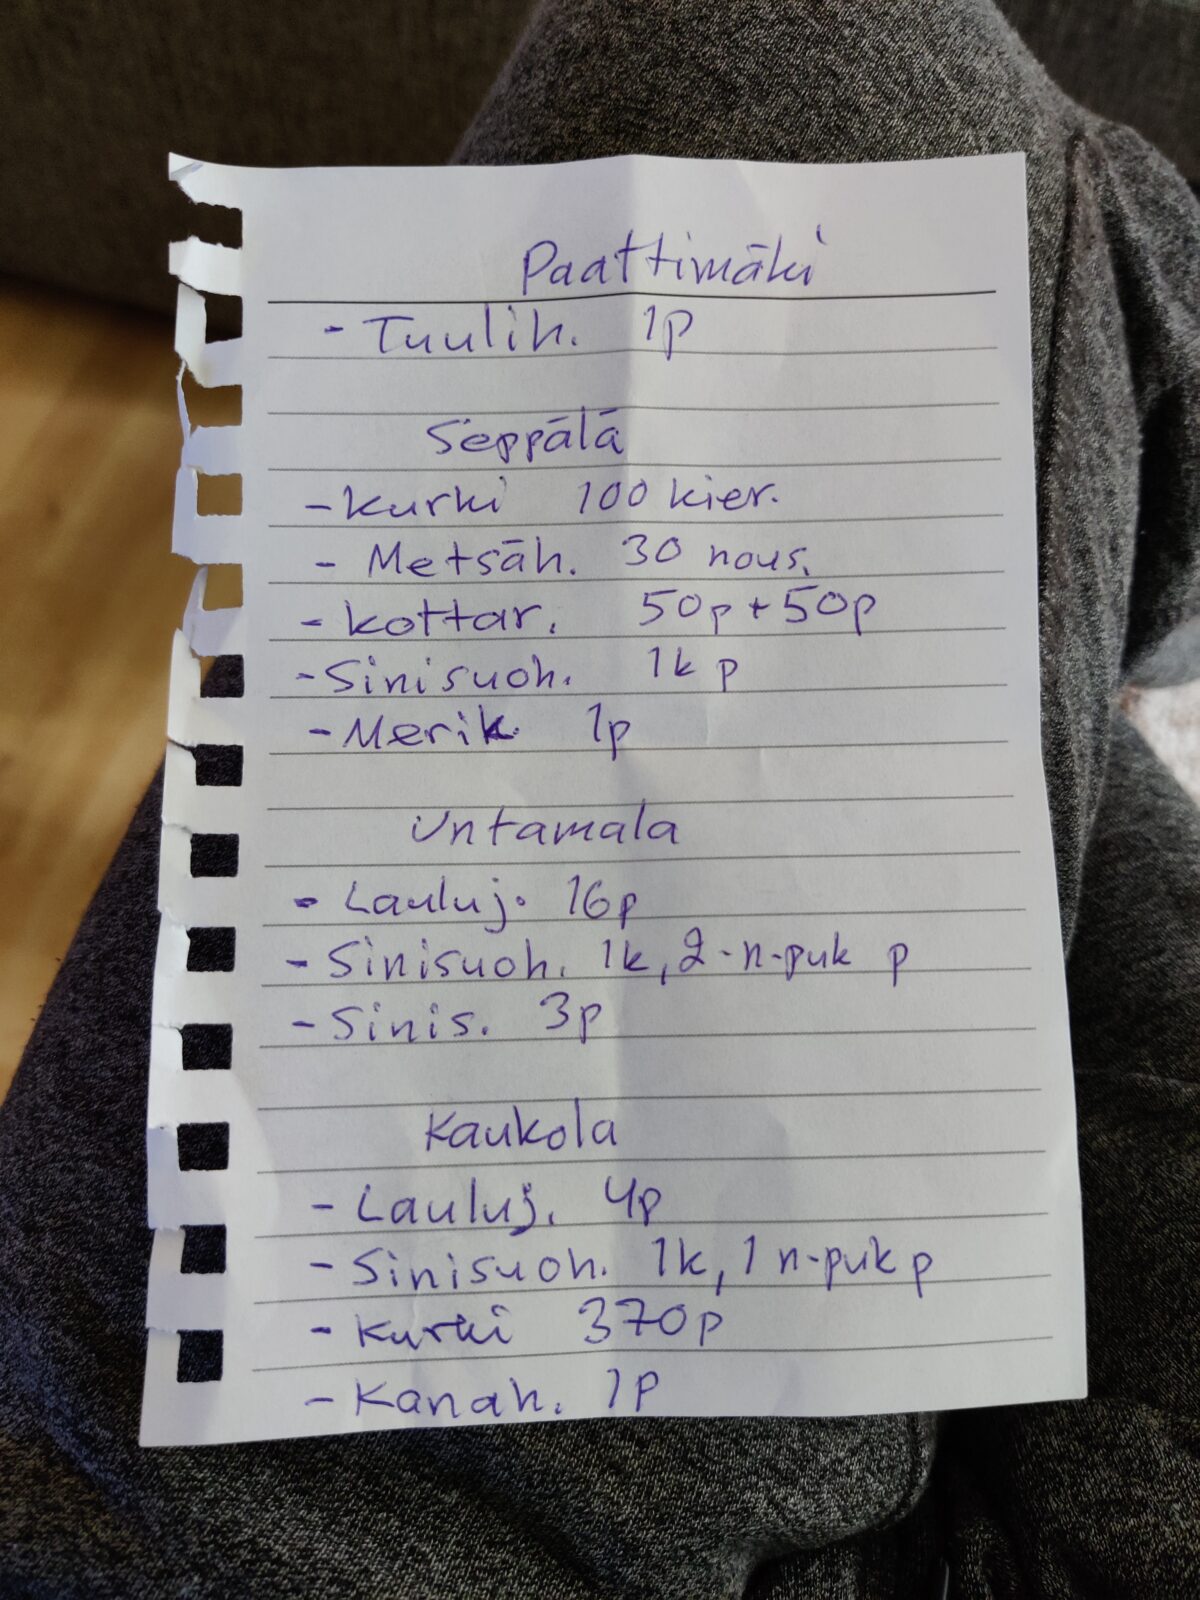 Paattimäki
- Tuulih. 1p
Seppälä
- Kurki 100 kier.
- Metsäh. 30 nous.
- Kottar. 50p + 50p
- Sinisuoh. 1k p
- Merik. 1p
Untamala
- Lauluj. 16p
- Sinisuoh. 1k, 2-n-puk p
- Sinis. 3p
Kaukola
- Lauluj. 4p
- Sinisuoh. 1k, 1 n-puk p
- Kurki 370p
- Kanah. 1p